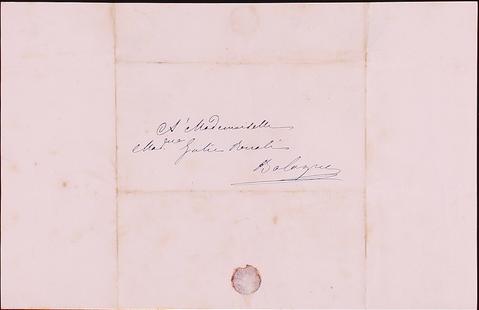 A' Mademoiselle
Mad.que Julie Bonali
Bologne